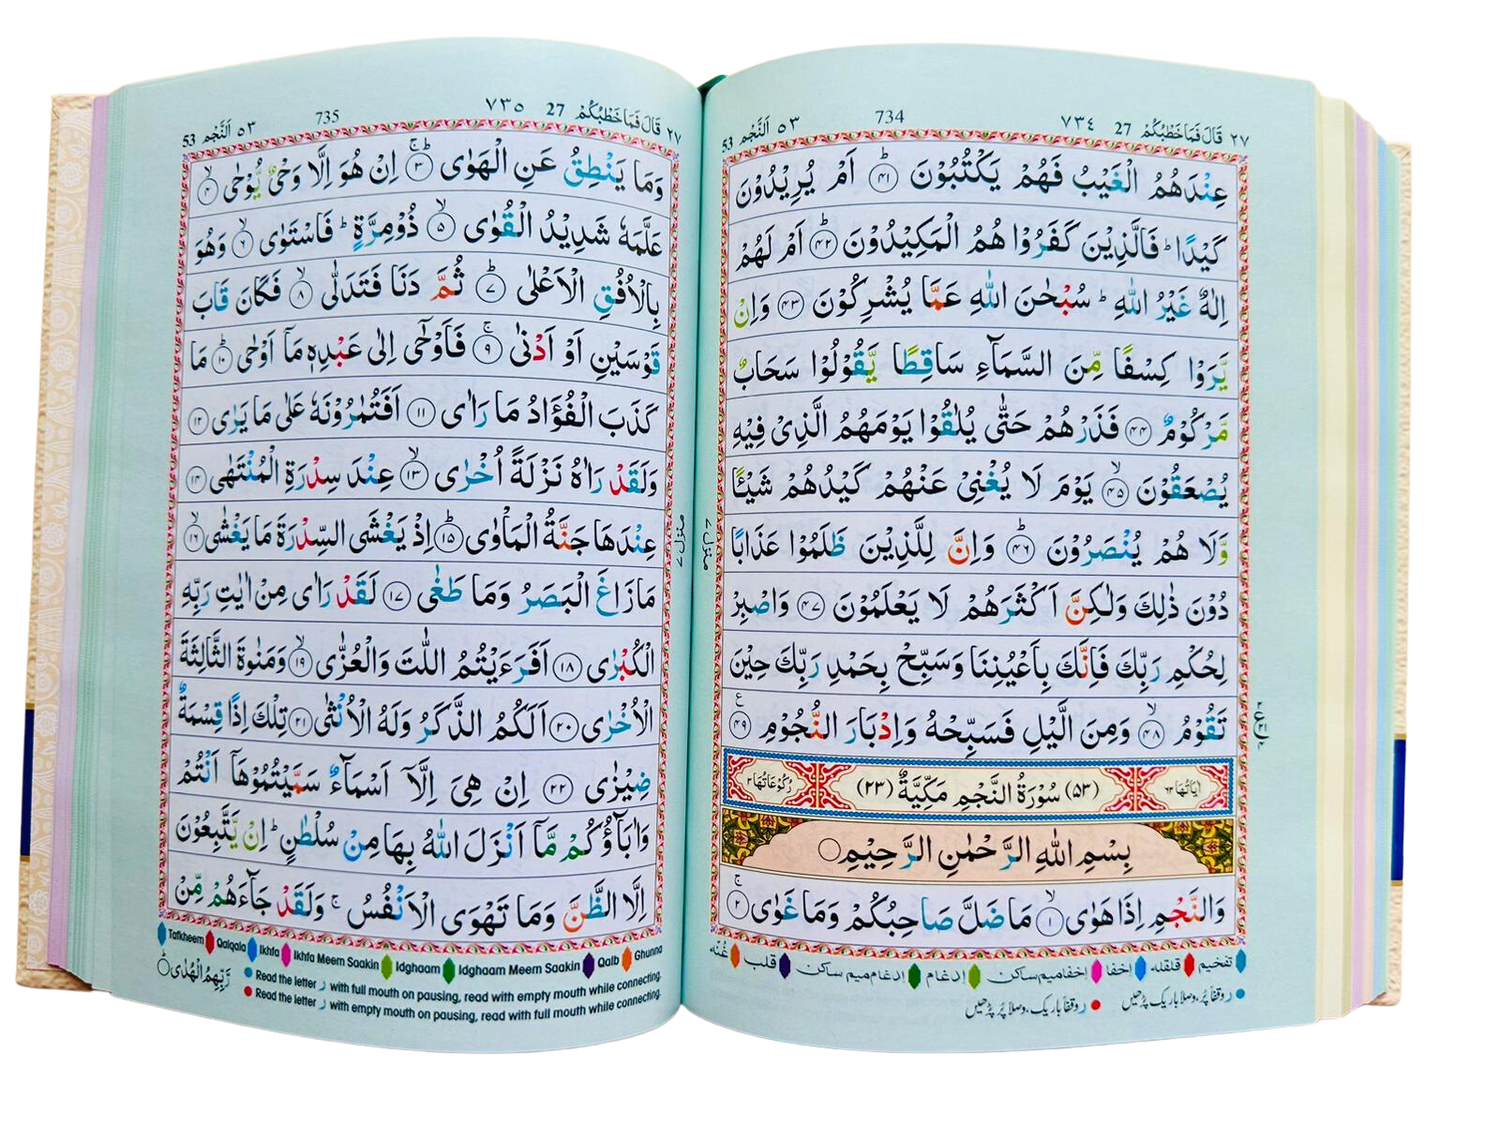 ٢٧ قَالَ فَمَا خَطْبُكُمْ 27 ٧٣٤ 734 ٥٣ اَلنَّجْمِ 53
عِنْدَهُمُ الْغَيْبُ فَهُمْ يَكْتُبُوْنَ ﴿۴۱﴾ؕ اَمْ يُرِيْدُوْنَ
كَيْدًا ؕ فَالَّذِيْنَ كَفَرُوْا هُمُ الْمَكِيْدُوْنَ ﴿۴۲﴾ؕ اَمْ لَهُمْ
اِلٰهٌ غَيْرُ اللّٰهِ ؕ سُبْحٰنَ اللّٰهِ عَمَّا يُشْرِكُوْنَ ﴿۴۳﴾ وَاِنْ
يَّرَوْا كِسْفًا مِّنَ السَّمَآءِ سَاقِطًا يَّقُوْلُوْا سَحَابٌ
مَّرْكُوْمٌ ﴿۴۴﴾ فَذَرْهُمْ حَتّٰى يُلٰقُوْا يَوْمَهُمُ الَّذِىْ فِيْهِ
يُصْعَقُوْنَ ﴿۴۵﴾ۙ يَوْمَ لَا يُغْنِىْ عَنْهُمْ كَيْدُهُمْ شَيْـًٔا
وَّلَا هُمْ يُنْصَرُوْنَ ﴿۴۶﴾ؕ وَاِنَّ لِلَّذِيْنَ ظَلَمُوْا عَذَابًا
دُوْنَ ذٰلِكَ وَلٰكِنَّ اَكْثَرَهُمْ لَا يَعْلَمُوْنَ ﴿۴۷﴾ وَاصْبِرْ
لِحُكْمِ رَبِّكَ فَاِنَّكَ بِاَعْيُنِنَا وَسَبِّحْ بِحَمْدِ رَبِّكَ حِيْنَ
تَقُوْمُ ﴿۴۸﴾ۙ وَمِنَ الَّيْلِ فَسَبِّحْهُ وَاِدْبَارَ النُّجُوْمِ ﴿۴۹﴾
اٰيَاتُهَا ٦٢ (٥٣) سُوْرَةُ النَّجْمِ مَكِّيَّةٌ (٢٣) رُكُوْعَاتُهَا ٣
بِسْمِ اللّٰهِ الرَّحْمٰنِ الرَّحِيْمِ
وَالنَّجْمِ اِذَا هَوٰى ﴿۱﴾ۙ مَا ضَلَّ صَاحِبُكُمْ وَمَا غَوٰى ﴿۲﴾ۚ
منزل ٧
تفخیم قلقلہ اخفا اخفا میم ساکن ادغام ادغام میم ساکن قلب غُنّہ
ر وقفاً پُر، وصلاً باریک پڑھیں
ر وقفاً باریک، وصلاً پُر پڑھیں
٢٧ قَالَ فَمَا خَطْبُكُمْ 27 ٧٣٥ 735 ٥٣ اَلنَّجْمِ 53
وَمَا يَنْطِقُ عَنِ الْهَوٰى ﴿۳﴾ؕ اِنْ هُوَ اِلَّا وَحْىٌ يُّوْحٰى ﴿۴﴾ۙ
عَلَّمَهٗ شَدِيْدُ الْقُوٰى ﴿۵﴾ۙ ذُوْ مِرَّةٍ ؕ فَاسْتَوٰى ﴿۶﴾ۙ وَهُوَ
بِالْاُفُقِ الْاَعْلٰى ﴿۷﴾ؕ ثُمَّ دَنَا فَتَدَلّٰى ﴿۸﴾ۙ فَكَانَ قَابَ
قَوْسَيْنِ اَوْ اَدْنٰى ﴿۹﴾ۚ فَاَوْحٰٓى اِلٰى عَبْدِهٖ مَاۤ اَوْحٰى ﴿۱۰﴾ؕ مَا
كَذَبَ الْفُؤَادُ مَا رَاٰى ﴿۱۱﴾ اَفَتُمٰرُوْنَهٗ عَلٰى مَا يَرٰى ﴿۱۲﴾
وَلَقَدْ رَاٰهُ نَزْلَةً اُخْرٰى ﴿۱۳﴾ۙ عِنْدَ سِدْرَةِ الْمُنْتَهٰى ﴿۱۴﴾
عِنْدَهَا جَنَّةُ الْمَاْوٰى ﴿۱۵﴾ؕ اِذْ يَغْشَى السِّدْرَةَ مَا يَغْشٰى ﴿۱۶﴾ۙ
مَا زَاغَ الْبَصَرُ وَمَا طَغٰى ﴿۱۷﴾ لَقَدْ رَاٰى مِنْ اٰيٰتِ رَبِّهِ
الْكُبْرٰى ﴿۱۸﴾ اَفَرَءَيْتُمُ اللّٰتَ وَالْعُزّٰى ﴿۱۹﴾ۙ وَمَنٰوةَ الثَّالِثَةَ
الْاُخْرٰى ﴿۲۰﴾ اَلَكُمُ الذَّكَرُ وَلَهُ الْاُنْثٰى ﴿۲۱﴾ تِلْكَ اِذًا قِسْمَةٌ
ضِيْزٰى ﴿۲۲﴾ اِنْ هِىَ اِلَّاۤ اَسْمَآءٌ سَمَّيْتُمُوْهَاۤ اَنْتُمْ
وَاٰبَآؤُكُمْ مَّاۤ اَنْزَلَ اللّٰهُ بِهَا مِنْ سُلْطٰنٍ ؕ اِنْ يَّتَّبِعُوْنَ
اِلَّا الظَّنَّ وَمَا تَهْوَى الْاَنْفُسُ ۚ وَلَقَدْ جَآءَهُمْ مِّنْ
منزل ٧
Tafkheem Qalqala Ikhfa Ikhfa Meem Saakin Idghaam Idghaam Meem Saakin Qalb Ghunna
رَّبِّهِمُ الْهُدٰى ؕ
Read the letter ر with full mouth on pausing, read with empty mouth while connecting.
Read the letter ر with empty mouth on pausing, read with full mouth while connecting.